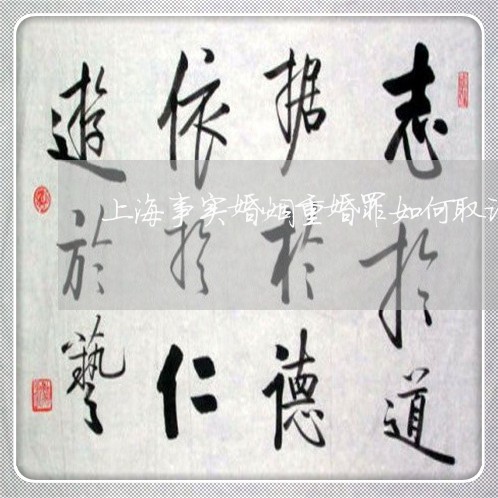 志於道
据於德
依於仁
遊於藝
上海事实婚姻重婚罪如何取